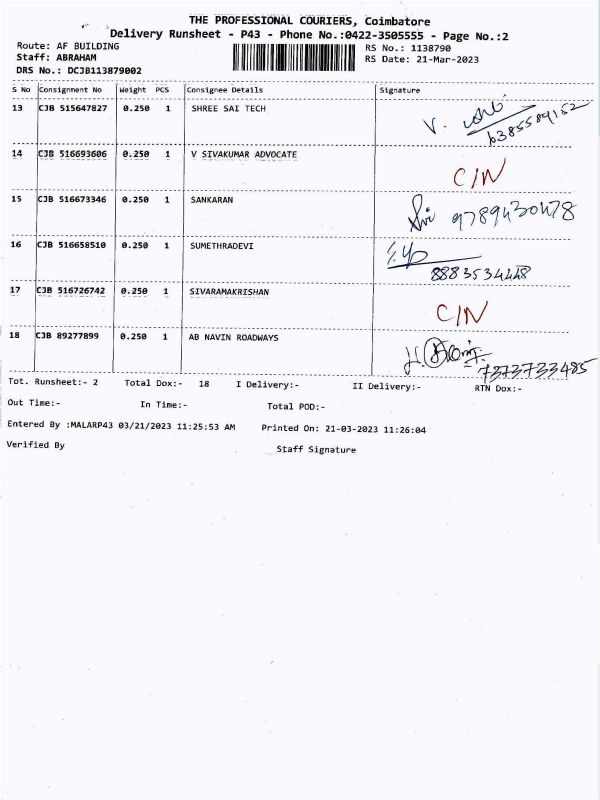 THE PROFESSIONAL COURIERS, Coimbatore
Delivery Runsheet - P43 - Phone No.:0422-3505555 - Page No.:2
Route: AF BUILDING RS No.: 1138790
Staff: ABRAHAM RS Date: 21-Mar-2023
DRS No.: DCJB113879002
S No Consignment No Weight PCS Consignee Details Signature
13 CJB 515647827 0.250 1 SHREE SAI TECH V.
14 CJB 516693606 0.250 1 V SIVAKUMAR ADVOCATE C/N
15 CJB 516673346 0.250 1 SANKARAN 9789430478
16 CJB 516658510 0.250 1 SUMETHRADEVI 8883534448
17 CJB 516726742 0.250 1 SIVARAMAKRISHAN C/N
18 CJB 89277899 0.250 1 AB NAVIN ROADWAYS 7373733485
Tot. Runsheet:- 2 Total Dox:- 18 I Delivery:- II Delivery:- RTN Dox:-
Out Time:- In Time:- Total POD:-
Entered By :MALARP43 03/21/2023 11:25:53 AM Printed On: 21-03-2023 11:26:04
Verified By Staff Signature